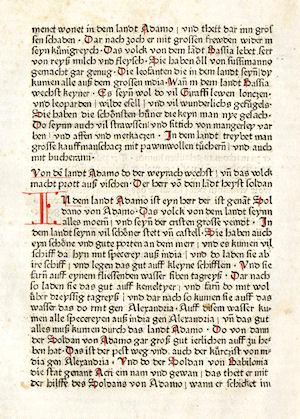 menet wonet in dem landt Adamo ; vnd theit dar inn gros
sen schaden · Dar nach zoch er mit grossen frewden wider in
seyn künigreych · Das volck von dem landt Bassia lebet ser
von reyß milch vnd fleysch · Sie haben öll von susimanno
gemacht gar genug · Die leofanten die in dem landt seyn dy
kumen alle auß dem grossen india · Wan in dem landt Bassia
wechst keyner · Es seyn wol do vil Giraffi lewen lonczen
vnd leoparden ; wilde esell ; vnd vil wunderlichs geflügels ·
Sie haben die schönsten hüner die keyn man nye gesach ·
Do seynn auch vil strawssen ; vnd sittich von mangerley var
ben ; vnd affen vnd merkaczen · In dem landt treybet man
grosse kauffmanschacz mit pawmwollen tüchern ; vnd auch
mit bucheram ·
Von dē landt Adamo do der weyrach wechst ; vn̄ das volck
macht prott auß vischen · Der herr vō dem lādt heyst soldan
In dem landt Adamo ist eyn herr der ist genāt Sol
dano von Adamo · Das volck von dem landt seynn
alles moern ; vnd seyn der ersten grosse vemdt · In
dem landt seynn vil schöner stett vn̄ castell · Sie haben auch
eyn schöne vnd gute porten an dem mer ; vnd es kumen vil
schiff da hyn mit specerey auß india ; vnd do laden sie ab
ire schiff ; vnd legen das gut auff kleyne schifflen · Vnd sie
farn auff eynem fliessenden wasser siben tagreyß · Dar nach
so laden sie das gut auff kemeltyer ; vnd farn do mit wol
über dreyssig tagreyß ; vnd dar nach so kumen sie auff das
wasser das do rint gen Alexandria · Auff disem wasser ku
men alle specereyen auß india gen Alexandria ; vn̄ das gut
alles muß kumen durch das landt Adamo · Do von dann
der Soldan von Adamo gar groß gut ierlichen auff zu he
ben hat · Das ist der pest weg vnd auch der kürczist von in
dia gen Alexandria · Vnd do der Soldan von Babilonia
die stat genant Acri ein nam vnd gewan ; das thett er mit
der hilffe des Soldans von Adamo ; wann er schicket im